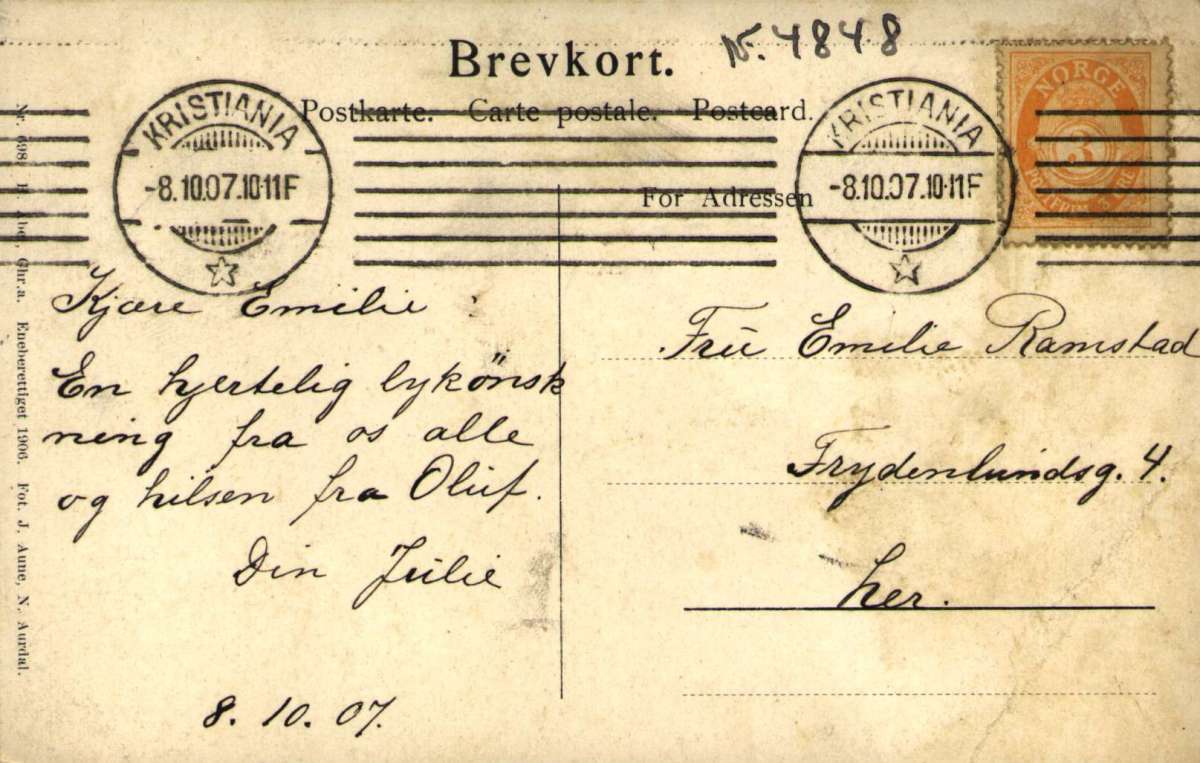 Brevkort.
Nr. 4848
Postkarte. Carte postale. Postcard.
For Adressen
KRISTIANIA
-8.10.07.10-11F
KRISTIANIA
-8.10.07.10-11F
NORGE
3
Kjære Emilie
En hjertelig lykönsk
ning fra os alle
og hilsen fra Oluf.
Din Julie
8. 10. 07.
Frü Emilie Ramstad
Frydenlundsg. 4.
her.
Abel, Chr.a. Eneberettiget 1906. Fot. J. Aune, N. Aurdal.